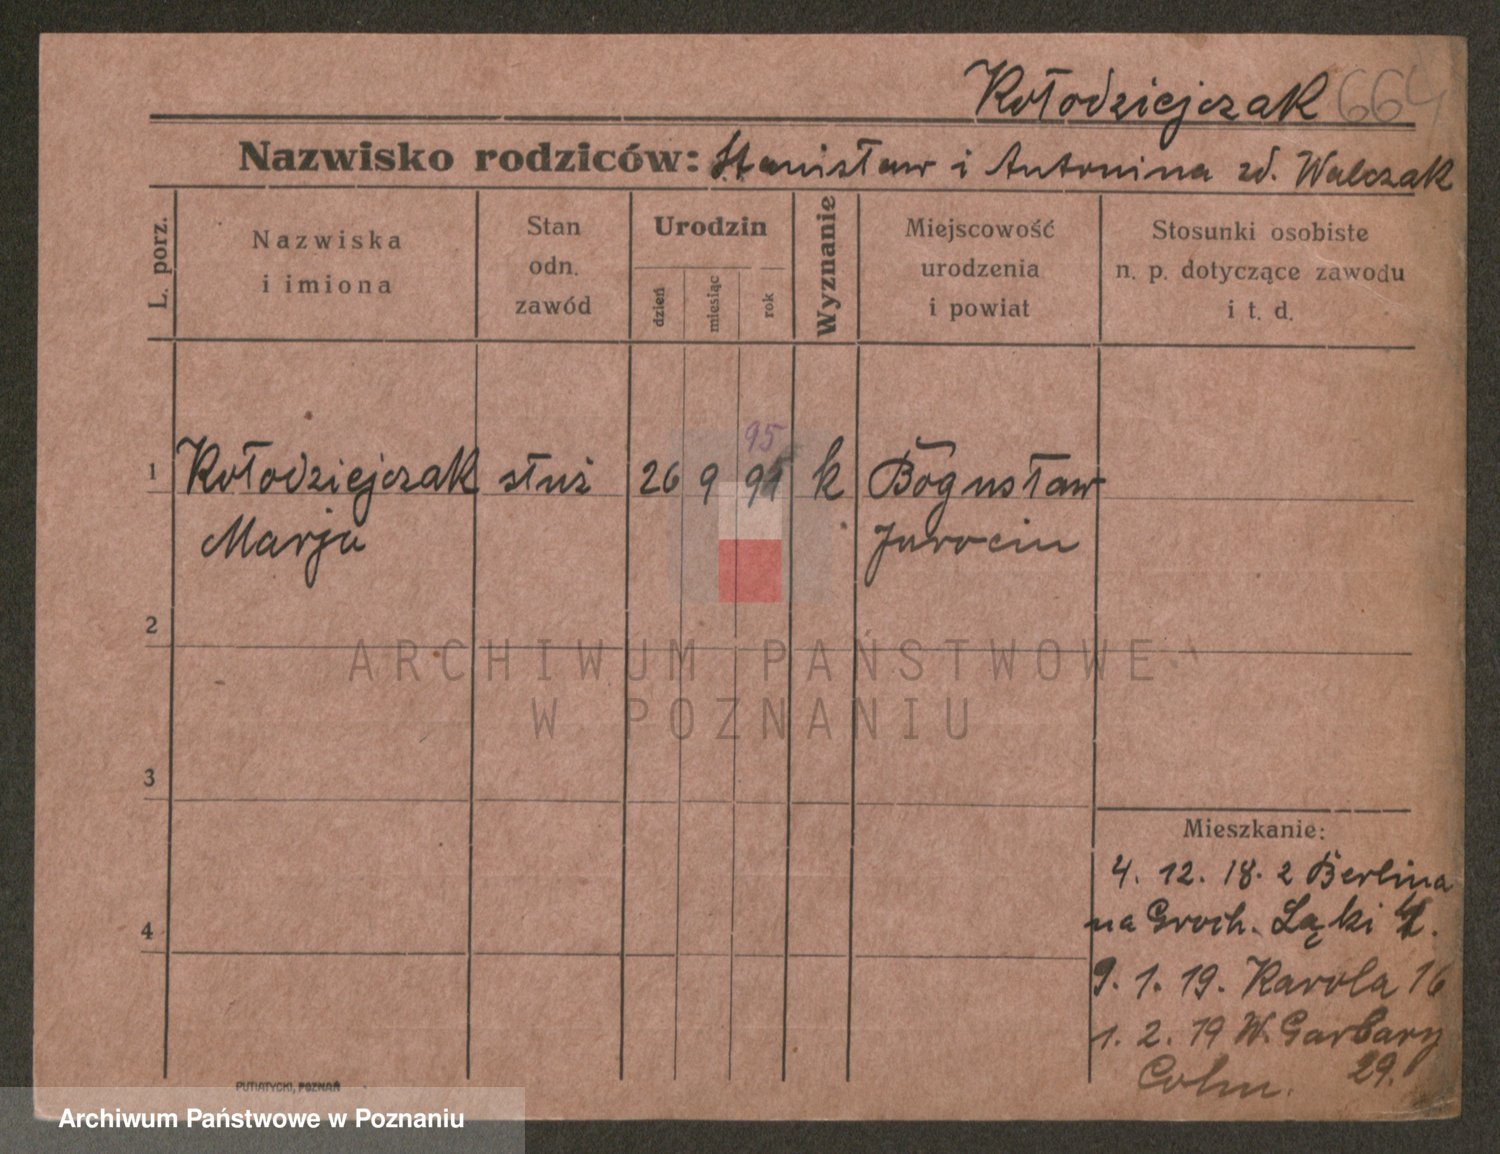 Kołodziejczak 664
Nazwisko rodziców: Stanisław i Antonina zd. Walczak
L. porz.
Nazwiska
i imiona
Stan
odn.
zawód
Urodzin
dzień
miesiąc
rok
Wyznanie
Miejscowość
urodzenia
i powiat
Stosunki osobiste
n. p. dotyczące zawodu
i t. d.
95
1 Kołodziejczak służ 26 9 k Bogusław
Marja Jarocin
2
ARCHIWUM PAŃSTWOWE
W POZNANIU
3
Mieszkanie:
4. 12. 18. z Berlina
na Groch. Łąki
4
9. 1. 19. Karola 16
1. 2. 19 W. Garbary
29.
PUTIATYCKI, POZNAŃ
Archiwum Państwowe w Poznaniu